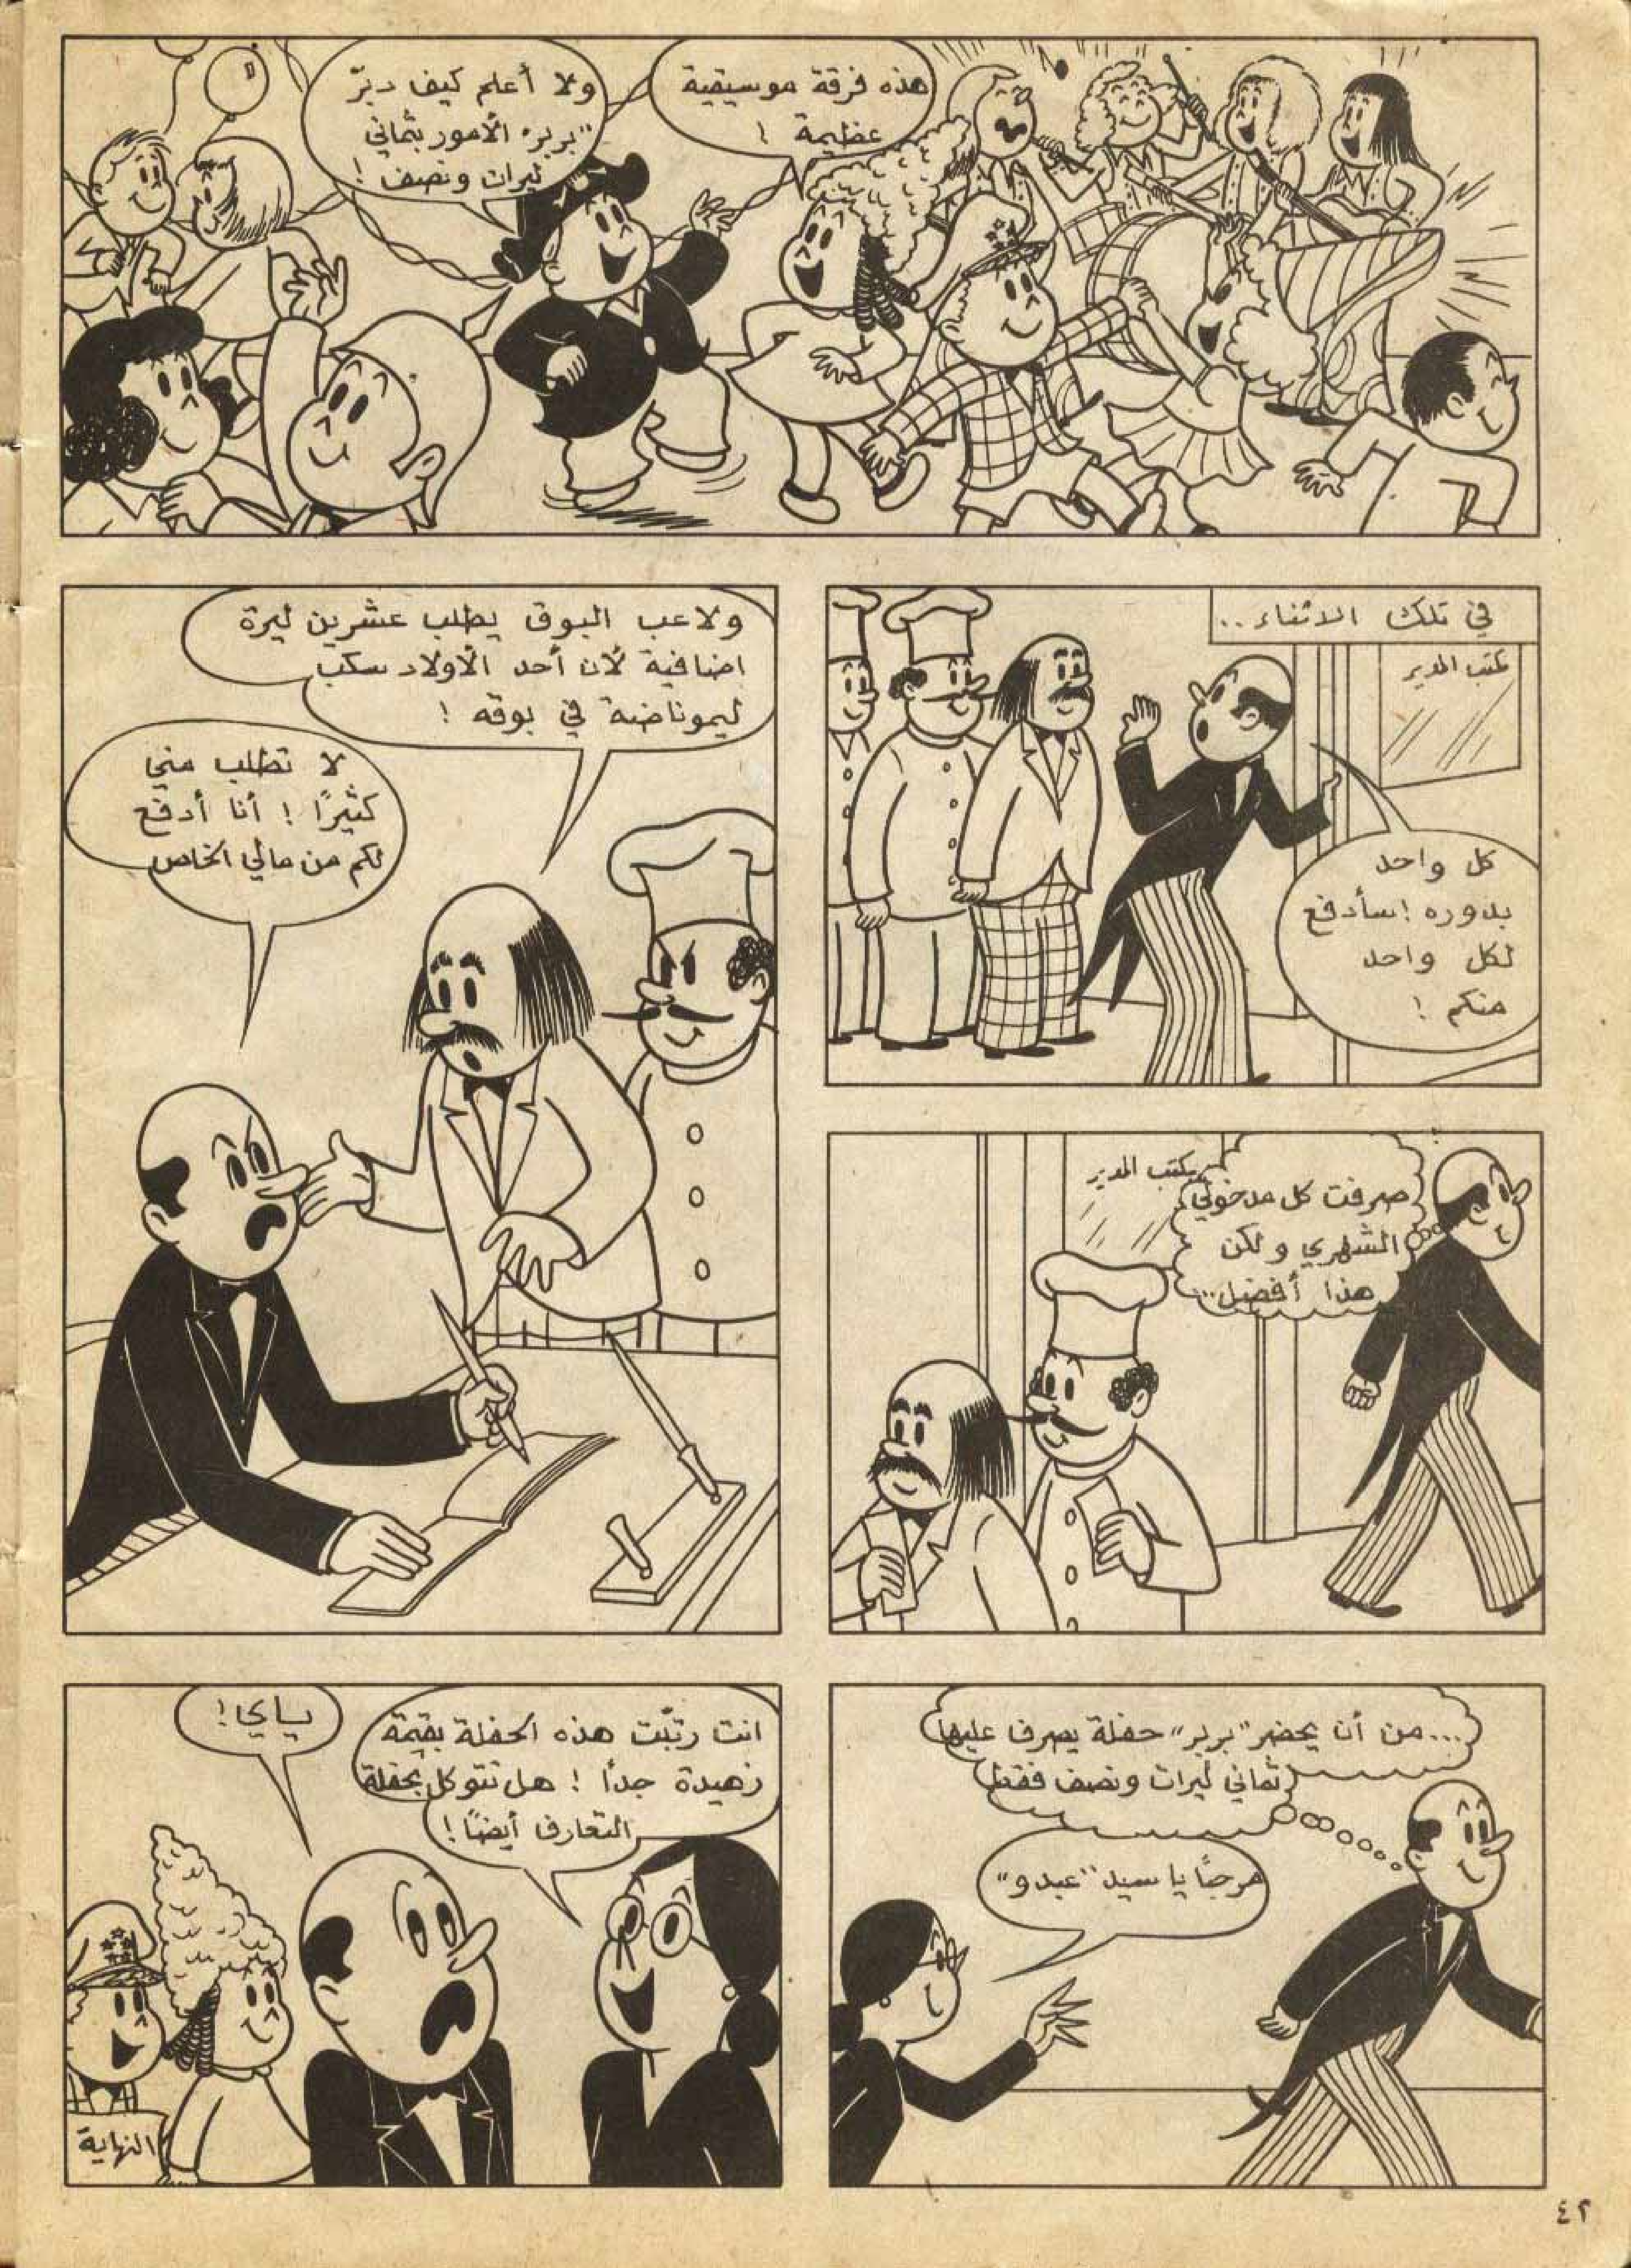 هذه فرقة موسيقية
عظيمة !
ولا أعلم كيف دبّر
"بربر" الأمور بثماني
ليرات ونصف !
في تلك الاثناء..
مكتب المدير
كل واحد
بدوره ! سأدفع
لكل واحد
منكم !
ولاعب البوق يطلب عشرين ليرة
اضافية لأن أحد الأولاد سكب
ليموناضة في بوقه !
لا تطلب مني
كثيرًا ! أنا أدفع
لكم من مالي الخاص
مكتب المدير
صرفت كل مدخولي
الشهري ولكن
هذا أفضل..
...من أن يحضر "بربر" حفلة يصرف عليها
ثماني ليرات ونصف فقط !
مرحبًا يا سيد "عبدو"
انت رتّبت هذه الحفلة بقيمة
زهيدة جدًا ! هل تتوكل بحفلة
التعارف أيضًا !
ياي !
النهاية
٤٢